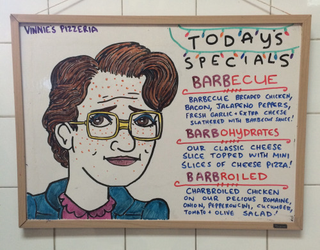 VINNIES PIZZERIA
TODAYS
SPECIALS
BARBECUE
BARBECUE BREADED CHICKEN,
BACON, JALAPENO PEPPERS,
FRESH GARLIC + EXTRA CHEESE
SLATHERED WITH BARBECUE SAUCE!
BARBOHYDRATES
OUR CLASSIC CHEESE
SLICE TOPPED WITH MINI
SLICES OF CHEESE PIZZA!
BARBROILED
CHARBROILED CHICKEN
ON OUR DELIOUS ROMAINE,
ONION, PEPPERONCINI, CUCUMBER,
TOMATO + OLIVE SALAD!